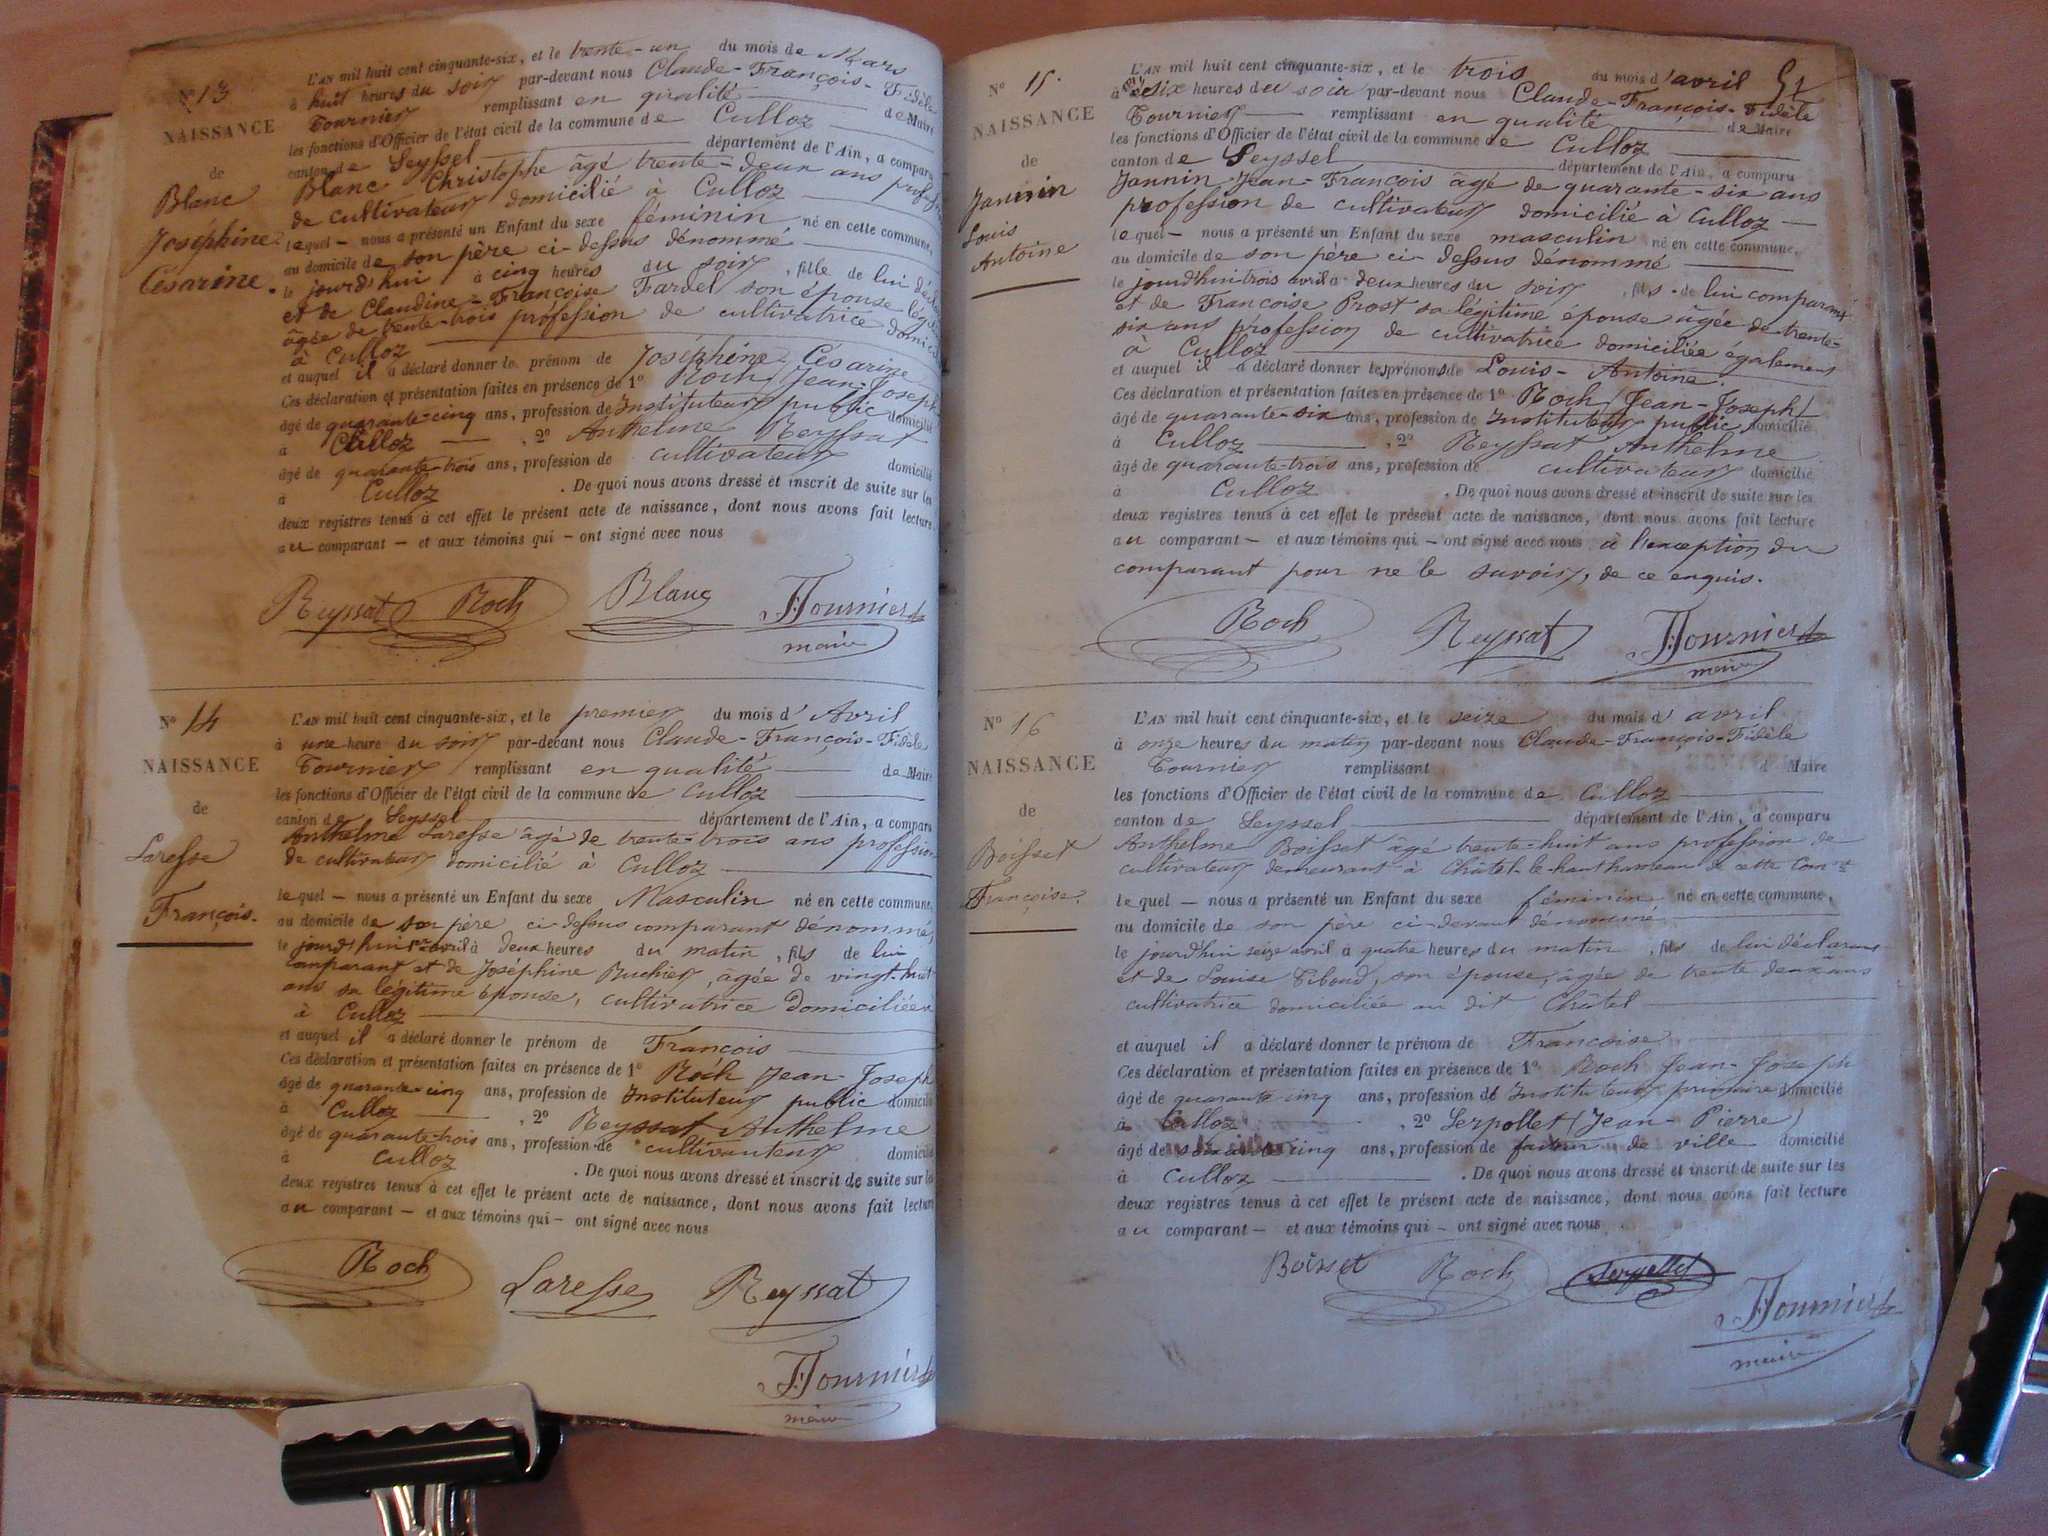 N° 13
NAISSANCE
de
Blanc
Joséphine
Césarine.
L'AN mil huit cent cinquante-six, et le trente-un du mois de Mars
à huit heures du soir par-devant nous Claude-François-Fidèle
Fournier remplissant en qualité de Maire
les fonctions d'Officier de l'état civil de la commune de Culloz
canton de Seyssel département de l'Ain, a comparu
Blanc Christophe âgé trente-deux ans
de cultivateur domicilié à Culloz
lequel — nous a présenté un Enfant du sexe féminin né en cette commune,
au domicile de son père ci-dessus dénommé
le jourd'hui à cinq heures du soir, fille de lui
et de Claudine-Françoise Fardel son épouse
âgée de trente-trois profession de cultivatrice
à Culloz
et auquel il a déclaré donner le prénom de Joséphine Césarine
Ces déclaration et présentation faites en présence de 1° Roch Jean-Joseph
âgé de quarante-cinq ans, profession de Instituteur public domicilié
à Culloz — , 2° Anthelme Reyssat
âgé de quarante-trois ans, profession de cultivateur domicilié
à Culloz . De quoi nous avons dressé et inscrit de suite sur les
deux registres tenus à cet effet le présent acte de naissance, dont nous avons fait lecture
au comparant — et aux témoins qui — ont signé avec nous
Reyssat Roch Blanc Fournier
maire
N° 14
NAISSANCE
de
Laresse
François.
L'AN mil huit cent cinquante-six, et le premier du mois d'Avril
à une heure du soir par-devant nous Claude-François-Fidèle
Fournier remplissant en qualité de Maire
les fonctions d'Officier de l'état civil de la commune de Culloz
canton de Seyssel département de l'Ain, a comparu
Anthelme Laresse âgé de trente-trois ans profession
de cultivateur domicilié à Culloz
lequel — nous a présenté un Enfant du sexe Masculin né en cette commune,
au domicile de son père ci-dessus comparant dénommé,
le jourd'hui 1er avril à deux heures du matin, fils de lui
comparant et de Joséphine Buchier, âgée de vingt-huit
ans sa légitime épouse, cultivatrice domiciliée
à Culloz
et auquel il a déclaré donner le prénom de François
Ces déclaration et présentation faites en présence de 1° Roch Jean-Joseph
âgé de quarante-cinq ans, profession de Instituteur public domicilié
à Culloz — , 2° Reyssat Anthelme
âgé de quarante-trois ans, profession de cultivateur domicilié
à Culloz . De quoi nous avons dressé et inscrit de suite sur les
deux registres tenus à cet effet le présent acte de naissance, dont nous avons fait lecture
au comparant — et aux témoins qui — ont signé avec nous
Roch Laresse Reyssat
Fournier
maire
51
N° 15.
NAISSANCE
de
Jannin
Louis
Antoine
L'AN mil huit cent cinquante-six, et le trois du mois d'avril
à six heures du soir par-devant nous Claude-François-Fidèle
Fournier — remplissant en qualité de Maire
les fonctions d'Officier de l'état civil de la commune de Culloz
canton de Seyssel département de l'Ain, a comparu
Jannin Jean-François âgé de quarante-six ans
profession de cultivateur domicilié à Culloz —
lequel — nous a présenté un Enfant du sexe masculin né en cette commune,
au domicile de son père ci-dessus dénommé
le jourd'hui trois avril à deux heures du soir, fils de lui comparant
et de Francoise Prost sa légitime épouse âgée de trente-
six ans profession de cultivatrice domiciliée également
à Culloz
et auquel il a déclaré donner les prénoms de Louis-Antoine.
Ces déclaration et présentation faites en présence de 1° Roch (Jean-Joseph)
âgé de quarante-six ans, profession de Instituteur public, domicilié
à Culloz — , 2° Reyssat Anthelme
âgé de quarante-trois ans, profession de cultivateur domicilié
à Culloz . De quoi nous avons dressé et inscrit de suite sur les
deux registres tenus à cet effet le présent acte de naissance, dont nous avons fait lecture
au comparant — et aux témoins qui — ont signé avec nous à l'exception du
comparant pour ne le savoir, de ce enquis.
Roch Reyssat Fournier
maire
N° 16
NAISSANCE
de
Boisset
Françoise.
L'AN mil huit cent cinquante-six, et le seize du mois d'avril
à onze heures du matin par-devant nous Claude-François-Fidèle
Fournier remplissant d Maire
les fonctions d'Officier de l'état civil de la commune de Culloz
canton de Seyssel département de l'Ain, a comparu
Anthelme Boisset âgé trente-huit ans profession de
cultivateur demeurant à Châtel-le-haut hameau de cette
lequel — nous a présenté un Enfant du sexe féminin né en cette commune,
au domicile de son père ci-devant dénommé
le jourd'hui seize avril à quatre heures du matin, fils de lui déclarant
et de Louise Tiboud, son épouse, âgée de trente deux ans
cultivatrice domiciliée au dit Châtel
et auquel il a déclaré donner le prénom de Francoise
Ces déclaration et présentation faites en présence de 1° Roch Jean-Joseph
âgé de quarante cinq ans, profession de Instituteur primaire domicilié
à Culloz , 2° Serpollet (Jean-Pierre)
âgé de cinq ans, profession de de ville domicilié
à Culloz . De quoi nous avons dressé et inscrit de suite sur les
deux registres tenus à cet effet le présent acte de naissance, dont nous avons fait lecture
au comparant — et aux témoins qui — ont signé avec nous
Boisset Roch Serpollet
Fournier
maire